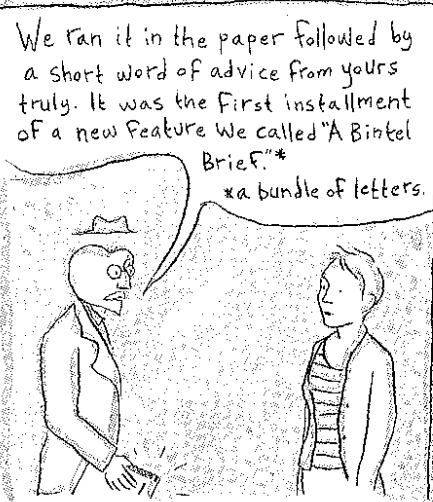 We ran it in the paper followed by
a short word of advice from yours
truly. It was the first installment
of a new feature we called "A Bintel
Brief."*
*a bundle of letters.